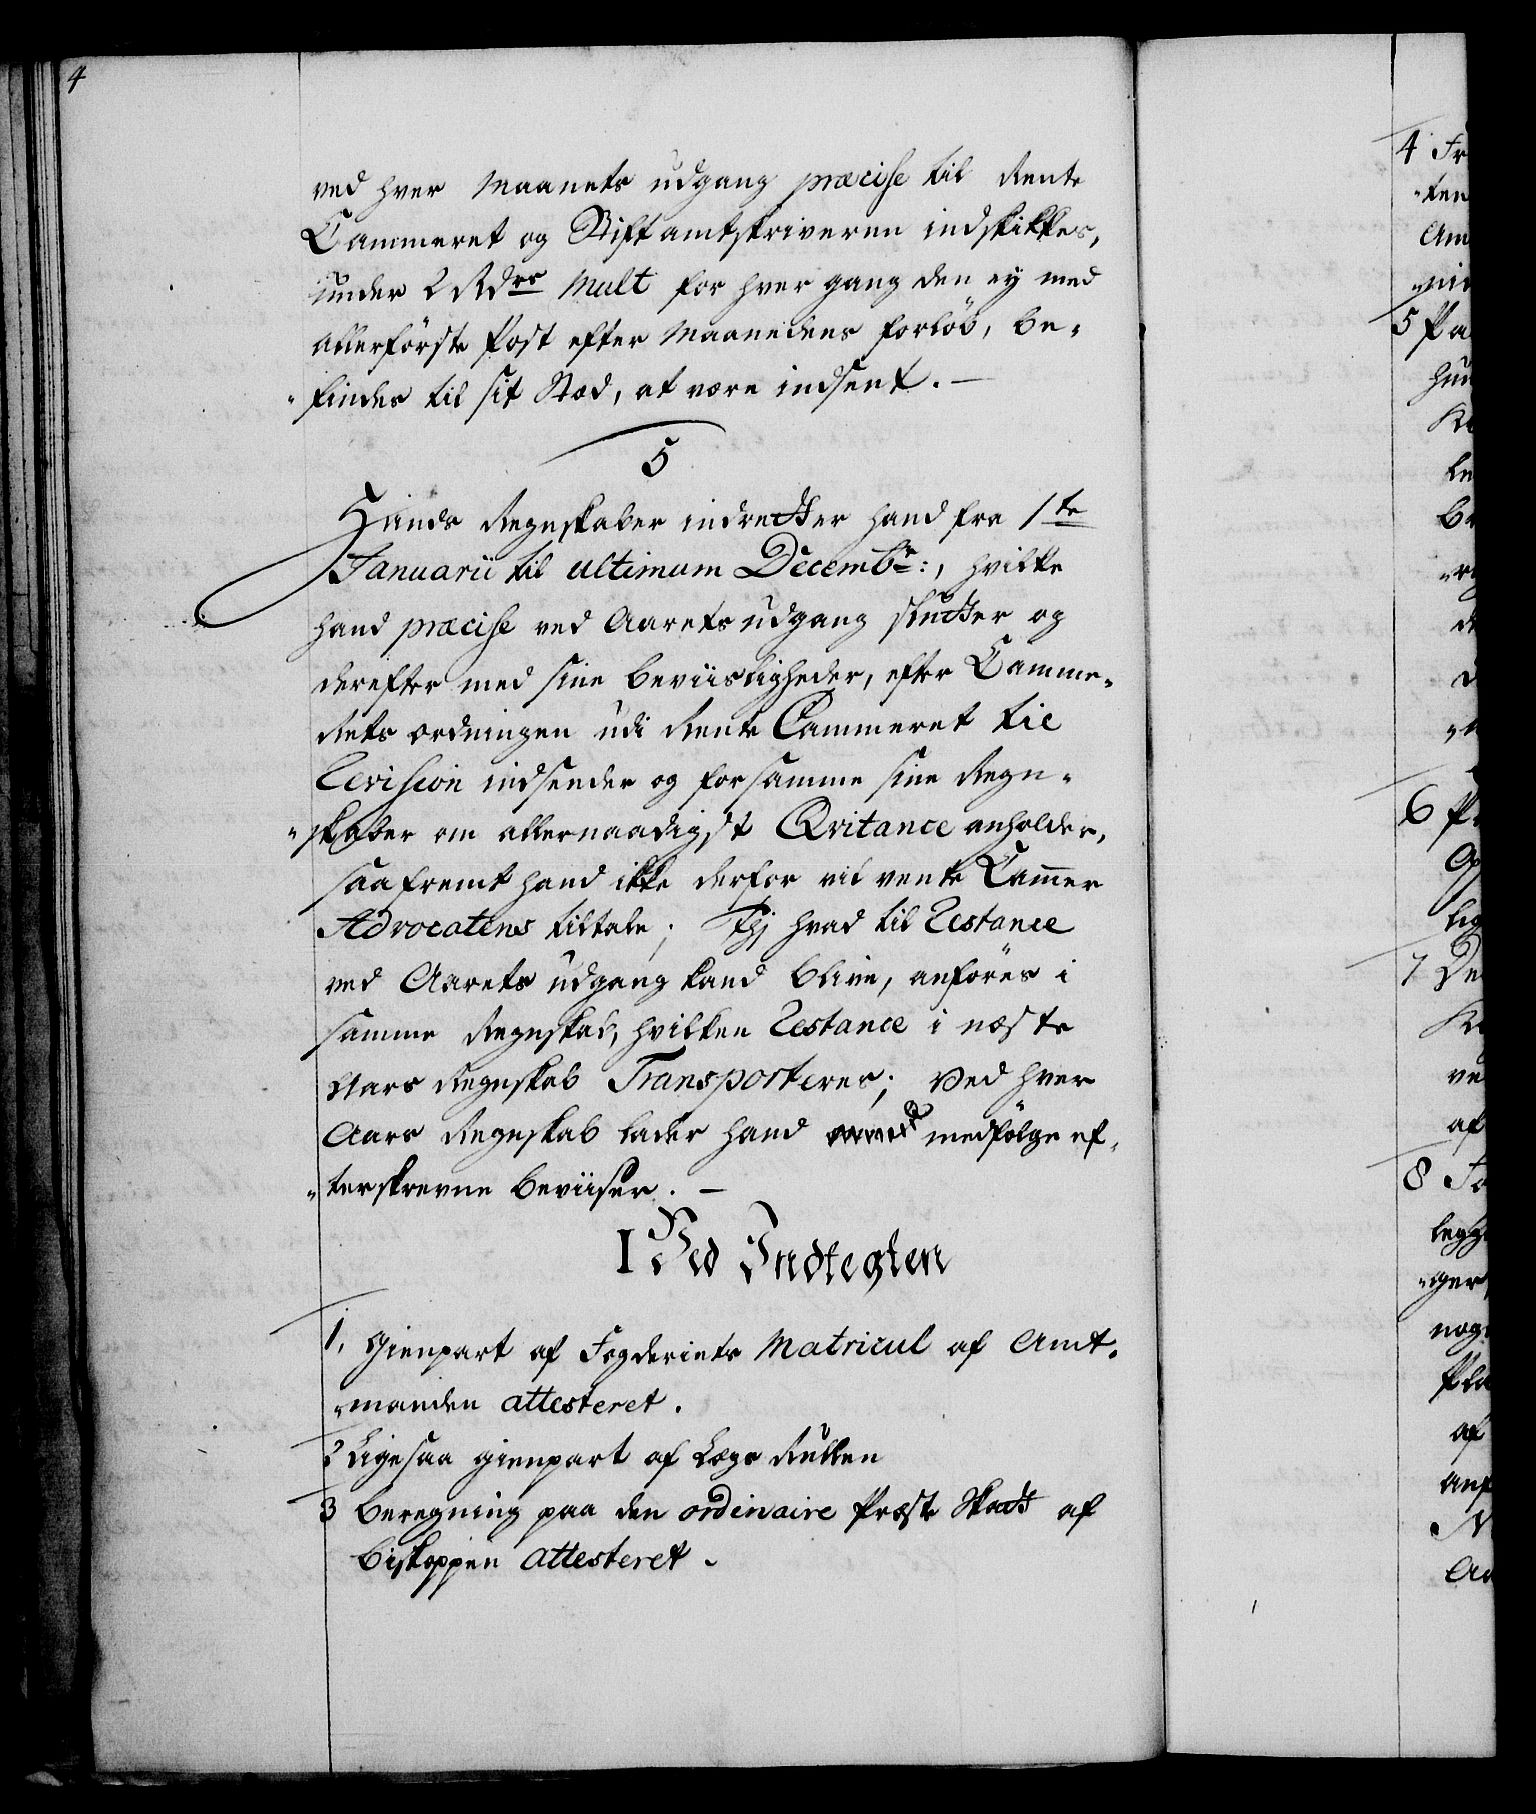 4
ved hver Maanets udgang præcise til Rente
Cammeret og Stiftamtskriveren indskikkes,
under 2 Rdrs Mult for hver gang den ey med
allerförste Post efter Maanedens forløb, be-
-findes til sit Stæd, at være indsent. —
5
Hands Regnskaber indretter hand fra 1te
Januarii til ultimum Decembr:, hvilke
hand præcise ved Aarets udgang slutter og
derefter med sine beviisligheder, efter Camme-
Rets ordningen udi Rente Cammeret til
Revision indsender og for samme sine Regn-
-skaber om allernaadigst Qvitance anholder,
saafremt hand ikke derfor vil vente Cammer
Advocatens tiltale; Thj hvad til Restance
ved Aarets udgang kand blive, anföres i
samme Regnskab, hvilken Restance i næste
Aars Regnskab Transporteres; Ved hver
Aars Regnskab lader hand medfölge ef-
-terskrevne beviiser. —
I Ved Indtegten
1, Gienpart af Fogderiets Matricul af Amt-
-manden attesteret.
2 Ligesaa gienpart af Lægs Rullen
3 Beregning paa den ordinaire Præste Skatt af
Biskoppen attesteret.
4 Fr
-ten
Am
5 Pa
6 Pr
lig
7 De
ve
af
8 Fo
legge
-ger,
nog
Pla
af
anf